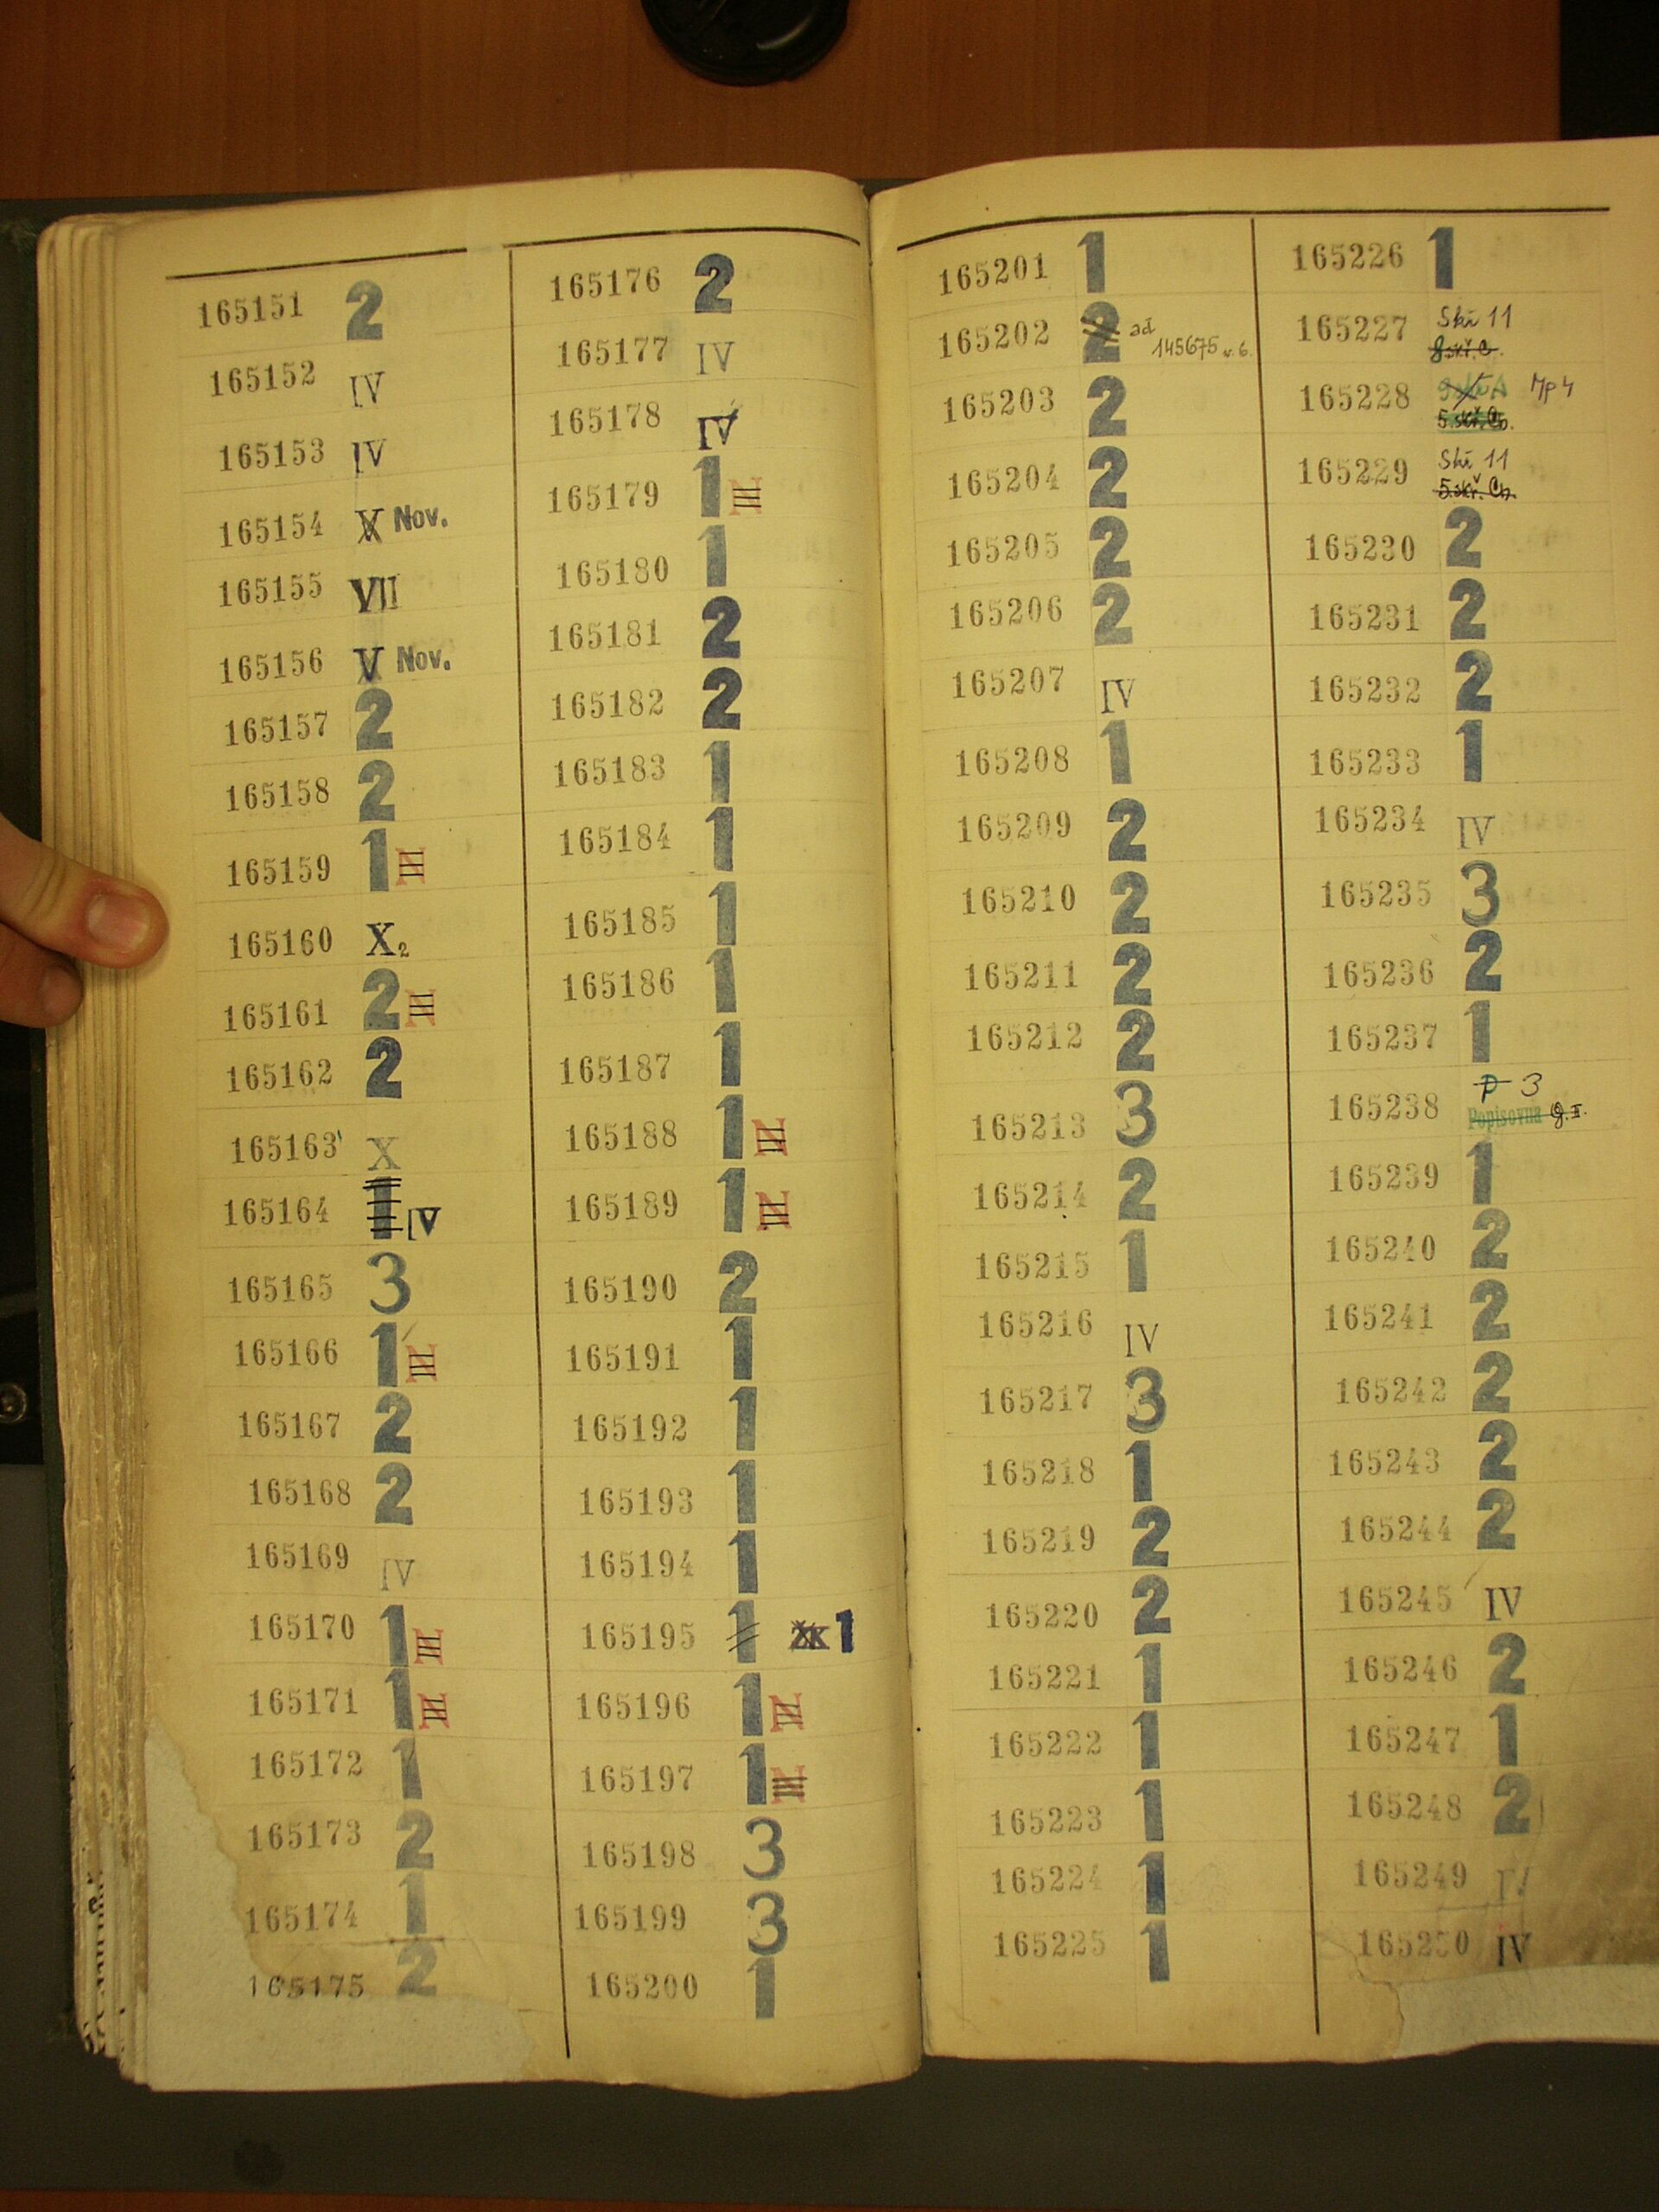 165151 2
165152 IV
165153 IV
165154 V Nov.
165155 VII
165156 V Nov.
165157 2
165158 2
165159 1 N
165160 X2
165161 2 N
165162 2
165163 X
165164 1 IV
165165 3
165166 1 N
165167 2
165168 2
165169 IV
165170 1 N
165171 1 N
165172 1
165173 2
165174 1
165175 2
165176 2
165177 IV
165178 IV
165179 1 N
165180 1
165181 2
165182 2
165183 1
165184 1
165185 1
165186 1
165187 1
165188 1 N
165189 1 N
165190 2
165191 1
165192 1
165193 1
165194 1
165195 1 1
165196 1 N
165197 1 N
165198 3
165199 3
165200 1
165201 1
165202 2 ad
145675 v. 6.
165203 2
165204 2
165205 2
165206 2
165207 IV
165208 1
165209 2
165210 2
165211 2
165212 2
165213 3
165214 2
165215 1
165216 IV
165217 3
165218 1
165219 2
165220 2
165221 1
165222 1
165223 1
165224 1
165225 1
165226 1
165227 Skř 11
8.skř.C.
165228 Mp 4
5.skř.Ch.
165229 Skř 11
5.skř.Ch.
165230 2
165231 2
165232 2
165233 1
165234 IV
165235 3
165236 2
165237 1
165238 P 3
Popisovna
165239 1
165240 2
165241 2
165242 2
165243 2
165244 2
165245 IV
165246 2
165247 1
165248 2
165249 IV
165250 IV